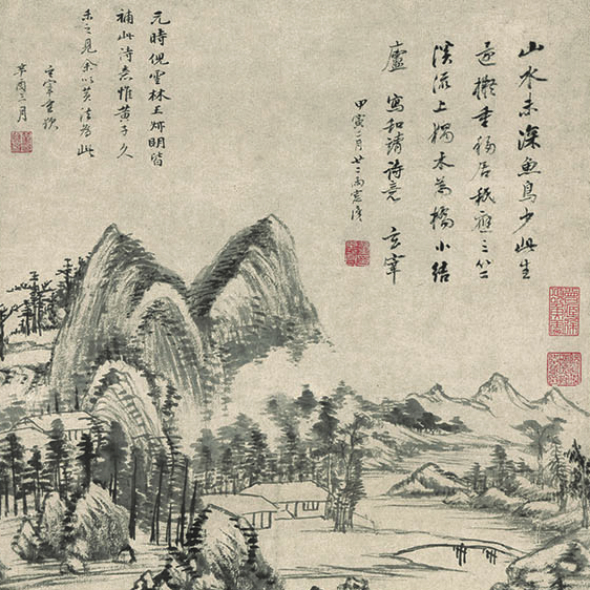 山水未深魚鳥少此生
還擬重移居祇應三竺
溪流上獨木為橋小結
廬 寫和靖詩意 玄宰
甲寅二月廿二雨窗識
元時倪雲林王叔明皆
補此詩意惟黃子久
未之見余以黃法為此
玄宰重題
辛酉三月